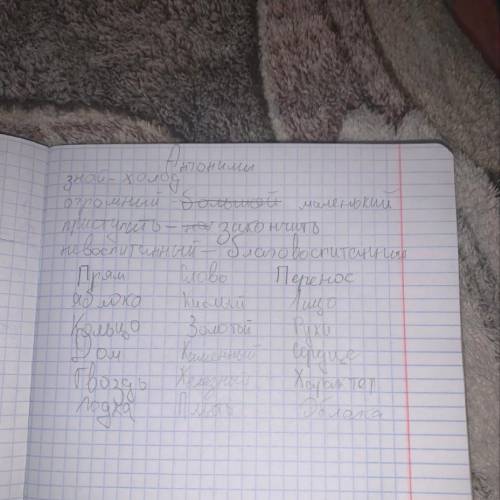 Антонимы
зной - холод
огромный - большой маленький
приступить - на закончить
невоспитанный - благовоспитанный
Прям Слово Перенос
Яблоко Кислый Лицо
Кольцо Золотой Руки
Дом Каменный Сердце
Гвоздь Железный Характер
Лодка Плыть Облака